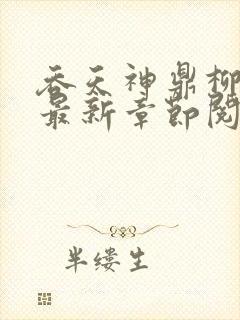 吞天神鼎柳
最新章节阅
半缕生